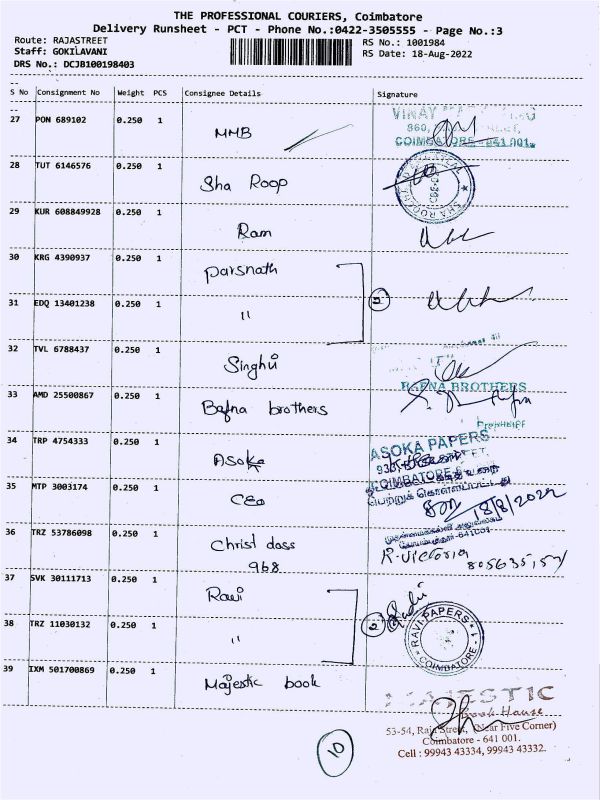 THE PROFESSIONAL COURIERS, Coimbatore
Delivery Runsheet - PCT - Phone No.:0422-3505555 - Page No.:3
Route: RAJASTREET
RS No.: 1001984
Staff: GOKILAVANI
RS Date: 18-Aug-2022
DRS No.: DCJB100198403
S No Consignment No Weight PCS Consignee Details Signature
27 PON 689102 0.250 1 MMB
VINAY
COIMBATORE - 641 001.
28 TUT 6146576 0.250 1 Sha Roop
29 KUR 608849928 0.250 1 Ram
30 KRG 4390937 0.250 1 parsnath
31 EDQ 13401238 0.250 1 "
2
32 TVL 6788437 0.250 1 Singhvi
33 AMD 25500867 0.250 1 Bafna brothers
BAFNA BROTHERS
34 TRP 4754333 0.250 1 Asoka
ASOKA PAPERS
COIMBATORE
35 MTP 3003174 0.250 1 CEO
பெற்றுக் கொள்ளப்பட்டது
18/8/2022
36 TRZ 53786098 0.250 1 Christ doss
968
R. Victoria
37 SVK 30111713 0.250 1 Ravi
38 TRZ 11030132 0.250 1 "
2
RAVI PAPERS
COIMBATORE - 1
39 IXM 501700869 0.250 1 Majestic book
MAJESTIC
Book House
53-54, Raja Street, (Near Five Corner)
Coimbatore - 641 001.
Cell : 99943 43334, 99943 43332.
10